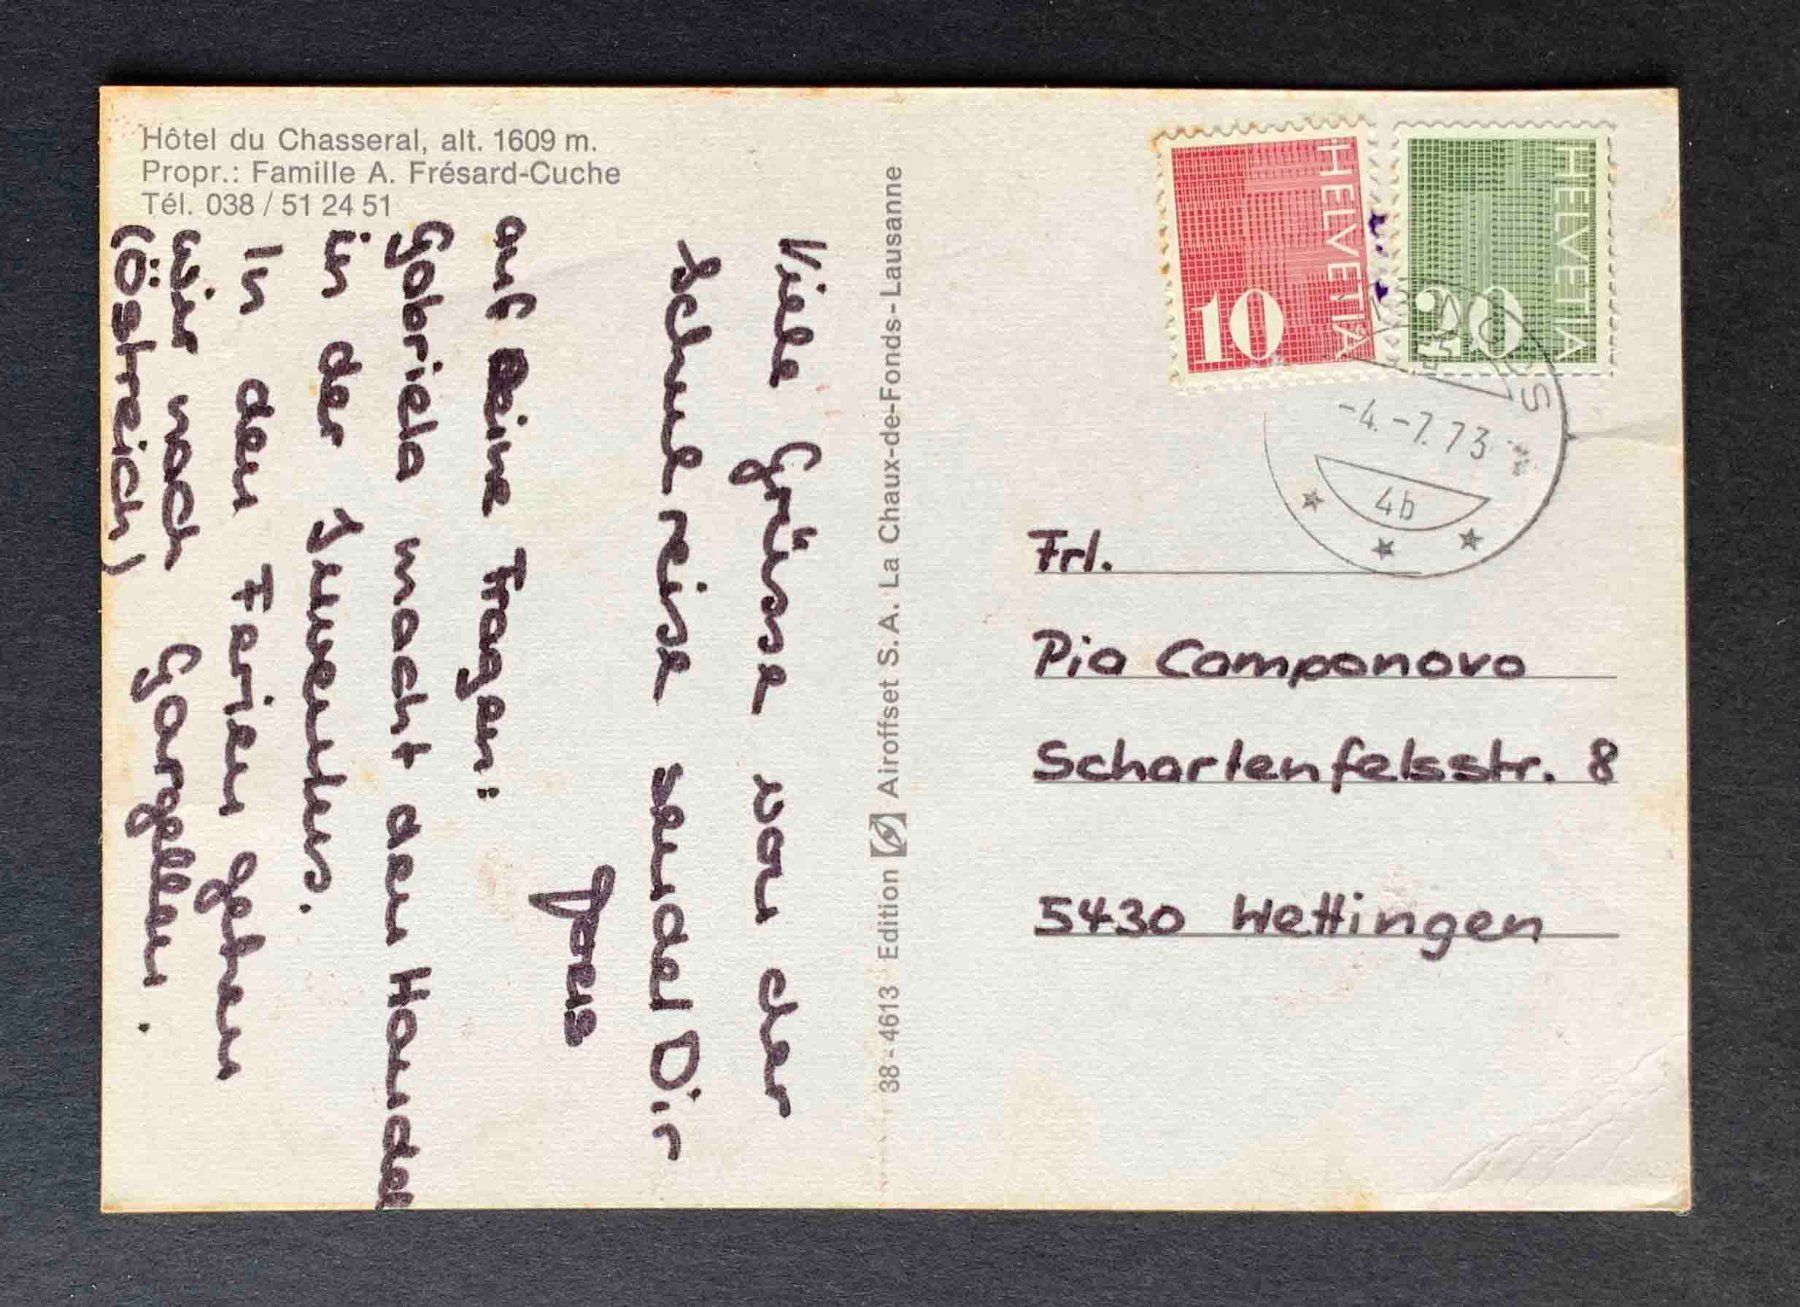 Hôtel du Chasseral, alt. 1609 m.
Propr.: Famille A. Frésard-Cuche
Tél. 038 / 51 24 51
Viele Grüsse von der
Schulreise sendet Dir
auf Deine Fragen:
Gabriela macht den Handel
in der Juventus.
In den Ferien gehen
wir nach Gargellen.
(Östreich)
38 - 4613 Edition Airoffset S.A. La Chaux-de-Fonds - Lausanne
HELVETIA
10
HELVETIA
20
-4.-7.73
4b
Frl.
Pia Camponovo
Schartenfelsstr. 8
5430 Wettingen